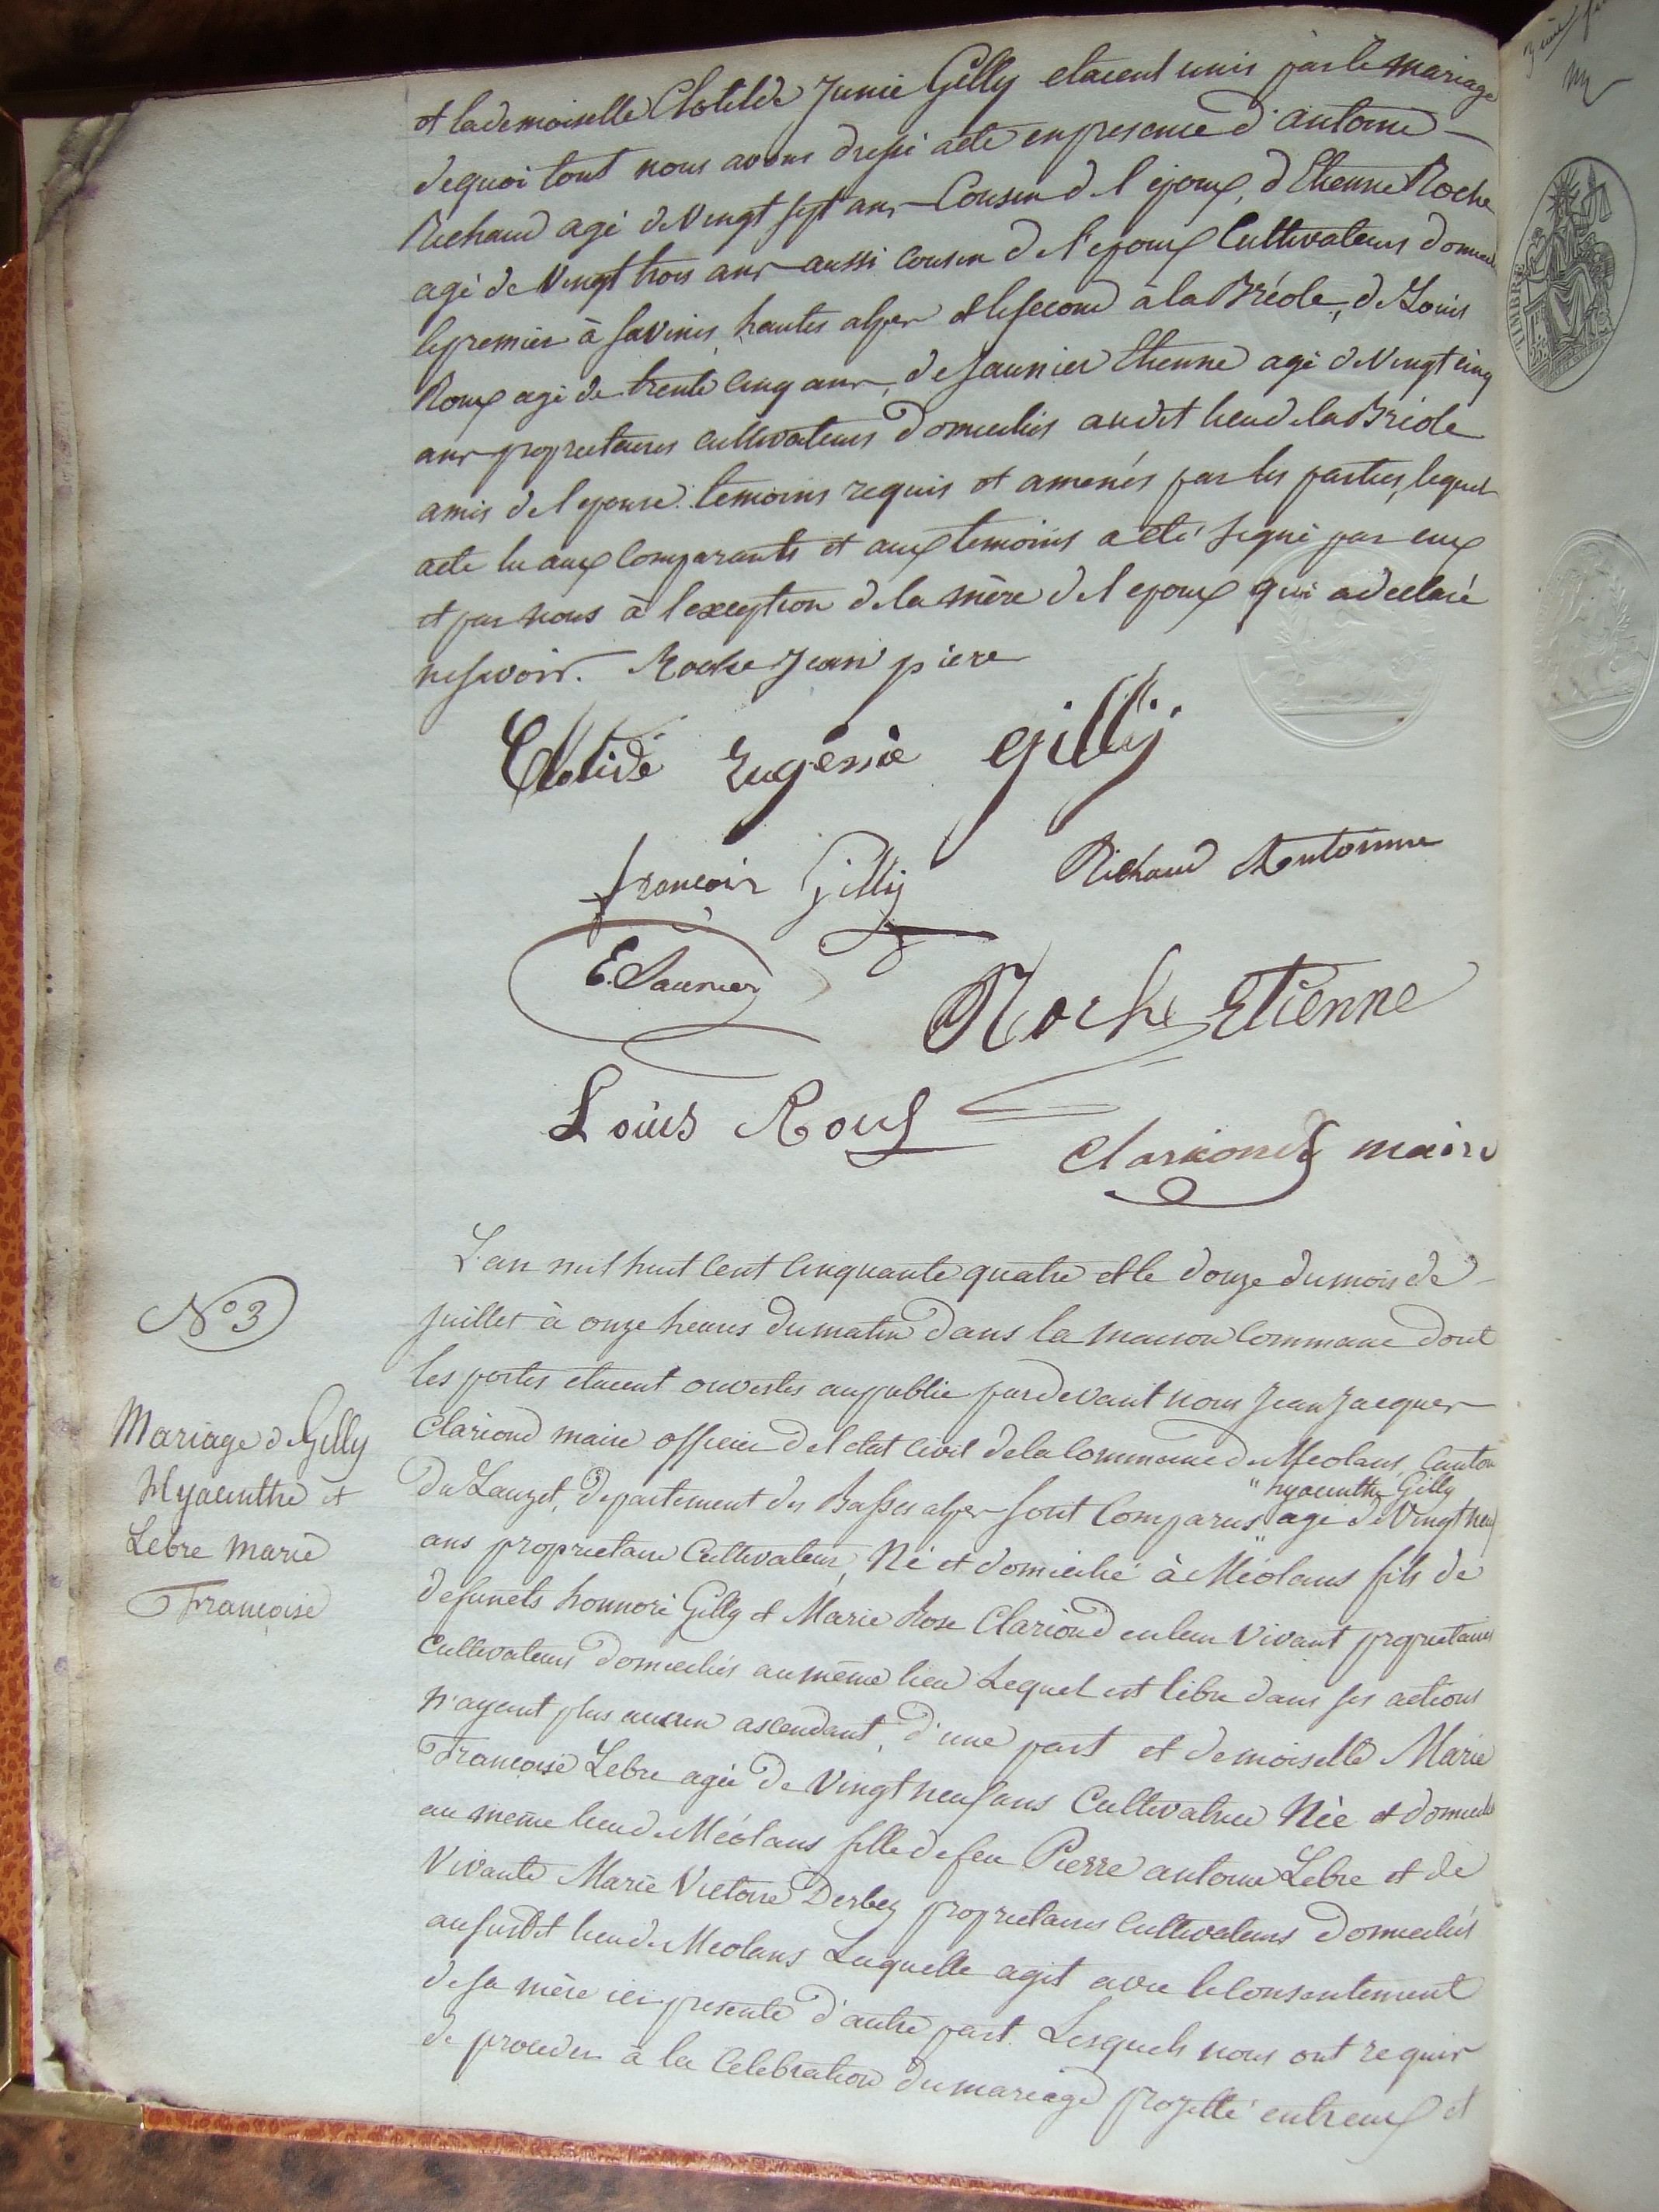 et lademoiselle Clotilde Junie Gilly etaient unis par le mariage
dequoi tout nous avons dressé acte enpresence d'antoine
Richaud agé de vingt sept ans Cousin de l'epoux, d'Etienne Roche
agé de vingt trois ans aussi cousin de l'epoux Cultivateurs domicilié
lepremier à Savines hautes alpes et lesecond à la Bréole, de Louis
Roux agé de trente cinq ans, de Saunier Etienne agé de vingt cinq
ans proprietaires cultivateurs domiciliés audit lieu de la Bréole
amis de l'epouse temoins requis et amenés par les parties, lequel
acte lu aux comparants et aux temoins a été signé par eux
et par nous à l'exception de la mère de l'epoux qui a declaré
nesavoir. Roche Jean piere
Clotide Eugénie gilly
francois Gilly
Richaud Antoinne
E. Saunier
Roche Etienne
Louis Roux
Clariond maire
N° 3
Mariage de Gilly
Hyacinthe et
Lebre marie
Françoise
L'an mil huit cent cinquante quatre et le douze dumois de
juillet à onze heures dumatin dans la maison Commune dont
les portes etaient ouvertes aupublic pardevant nous Jean Jacques
Clariond maire officier de l'etat civil de la commune de Meolans, canton
du Lauzet, departement des Basses alpes sont Comparus " hyacinthe Gilly " agé de vingt neuf
ans proprietaire Cultivateur, Né et domicilié à Méolans fils de
defunets honnoré Gilly et Marie Rose Clariond enleur vivant proprietaires
cultivateurs domiciliés aumême lieu Lequel est libre dans ses actions
n'ayant plus aucun ascendant, d'une part et demoiselle Marie
Françoise Lebre agée de vingt neuf ans Cultivatrice Née et domiciliée
au même lieu de Méolans fille de feu Pierre antoine Lebre et de
vivante Marie Victoire Derbez proprietaires cultivateurs domiciliés
aususdit lieu de Meolans Laquelle agit avec leconsentement
de sa mère ici presente d'autre part. Lesquels nous ont requis
de proceder à la celebration dumariage projetté entreeux et
TIMBRE